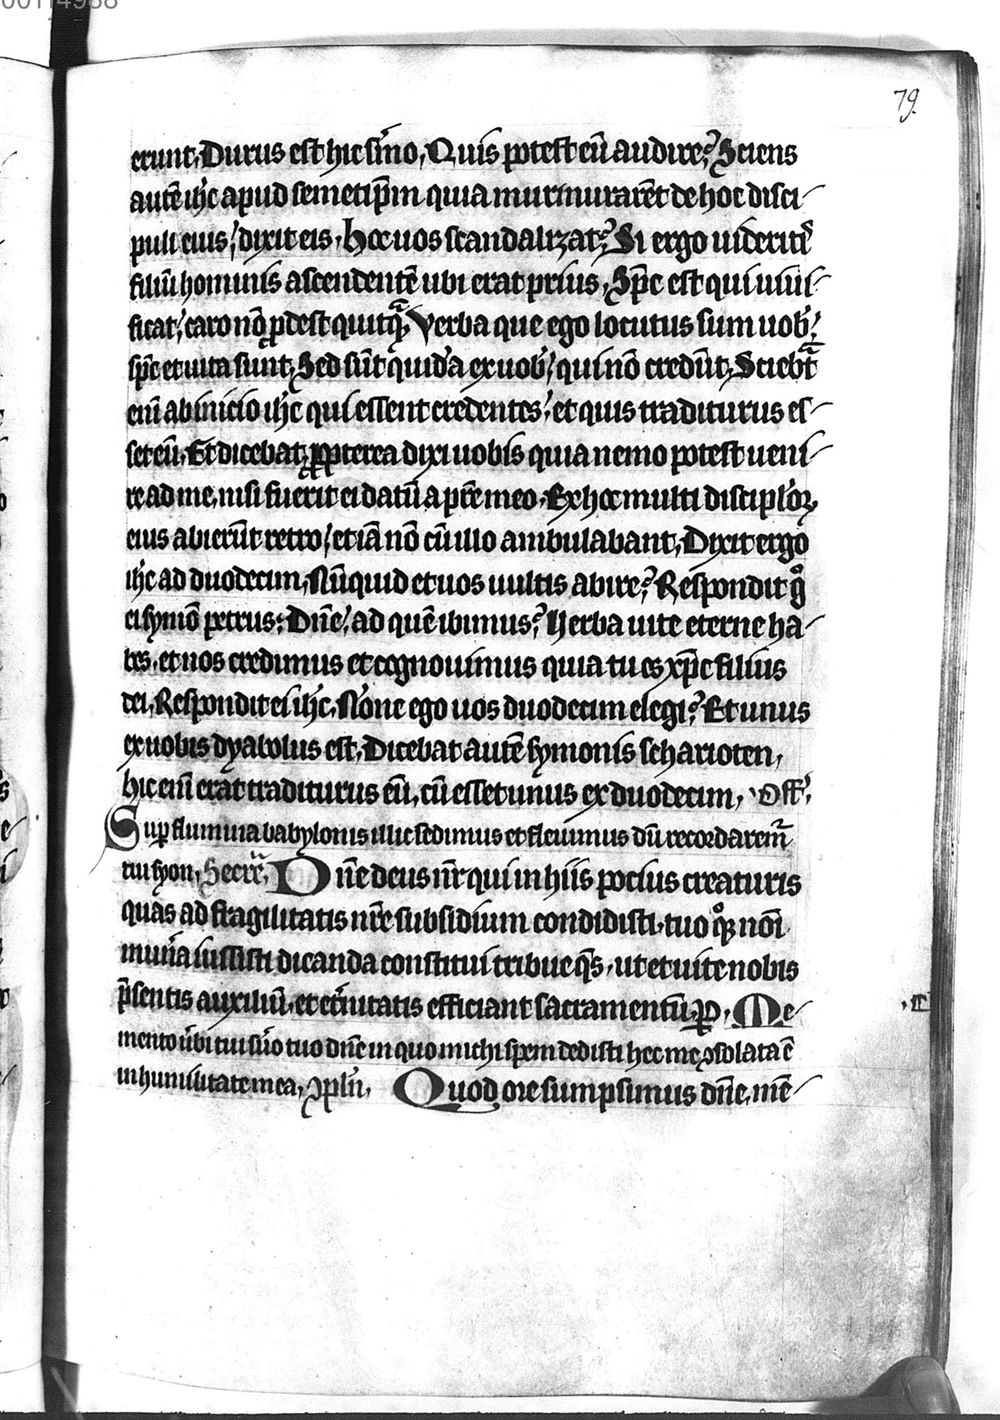 00114988
79.
erunt. Durus est hic sermo. Quis potest eū audire? Sciens
autē ihc̄ apud semetip̄m quia murmurarēt de hoc disci-
puli eius, dixit eis. Hoc uos scandalizat? Si ergo uiderit᷒
filiū hominis ascendentē ubi erat prius. Sp̄c est qui uiui-
ficat, caro nō ꝓdest quicq̄. Verba que ego locutus sum uob᷒,
sp̄c et uita sunt. Sed sūt quida᷒ ex uob᷒, qui nō credūt. Sciebat
eni᷒ ab inicio ihc̄ qui essent credentes, et quis traditurus es-
set eū. Et dicebat. ꝓpterea dixi uobis quia nemo potest ueni-
re ad me, nisi fuerit ei datū a pr̄e meo. Ex hoc multi discipl᷒oꝝ
eius abierūt retro, et iā nō cū illo ambulabant. Dixit ergo
ihc̄ ad duodecim. Nūquid et uos uultis abire? Respondit gͦ
ei symō petrus. Dn̄e, ad quē ibimus? Uerba uite eterne ha-
bes. et nos credimus et cognouimus quia tu es xp̄c filius
dei. Respondit ei ihc̄. Nōne ego uos duodecim elegi? Et unus
ex uobis dyabolus est. Dicebat autē symonis scharioten,
hic eni᷒ erat traditurus eū, cū esset unus ex duodecim. Off᷒.
Suꝑ flumina babylonis illic sedimus et fleuimus dū recordarem᷒
tui syon. Secre᷒. Dn̄e deus nr̄ qui in hiis pocius creaturis
quas ad fragilitatis nr̄e subsidium condidisti. tuo qͦꝫ noi᷒
mun᷒a iussisti dicanda constitui tribue qs̄. ut et uite nobis
p᷒sentis auxiliū. et et᷒nitatis efficiant sacramentū. ꝑ. Me-
mento u᷒bi tui su᷒o tuo dn̄e in quo michi spem dedisti hec me ꝯsolata ē
in humilitate mea. ꝯpln᷒. Quod ore sumpsimus dn̄e. mē-